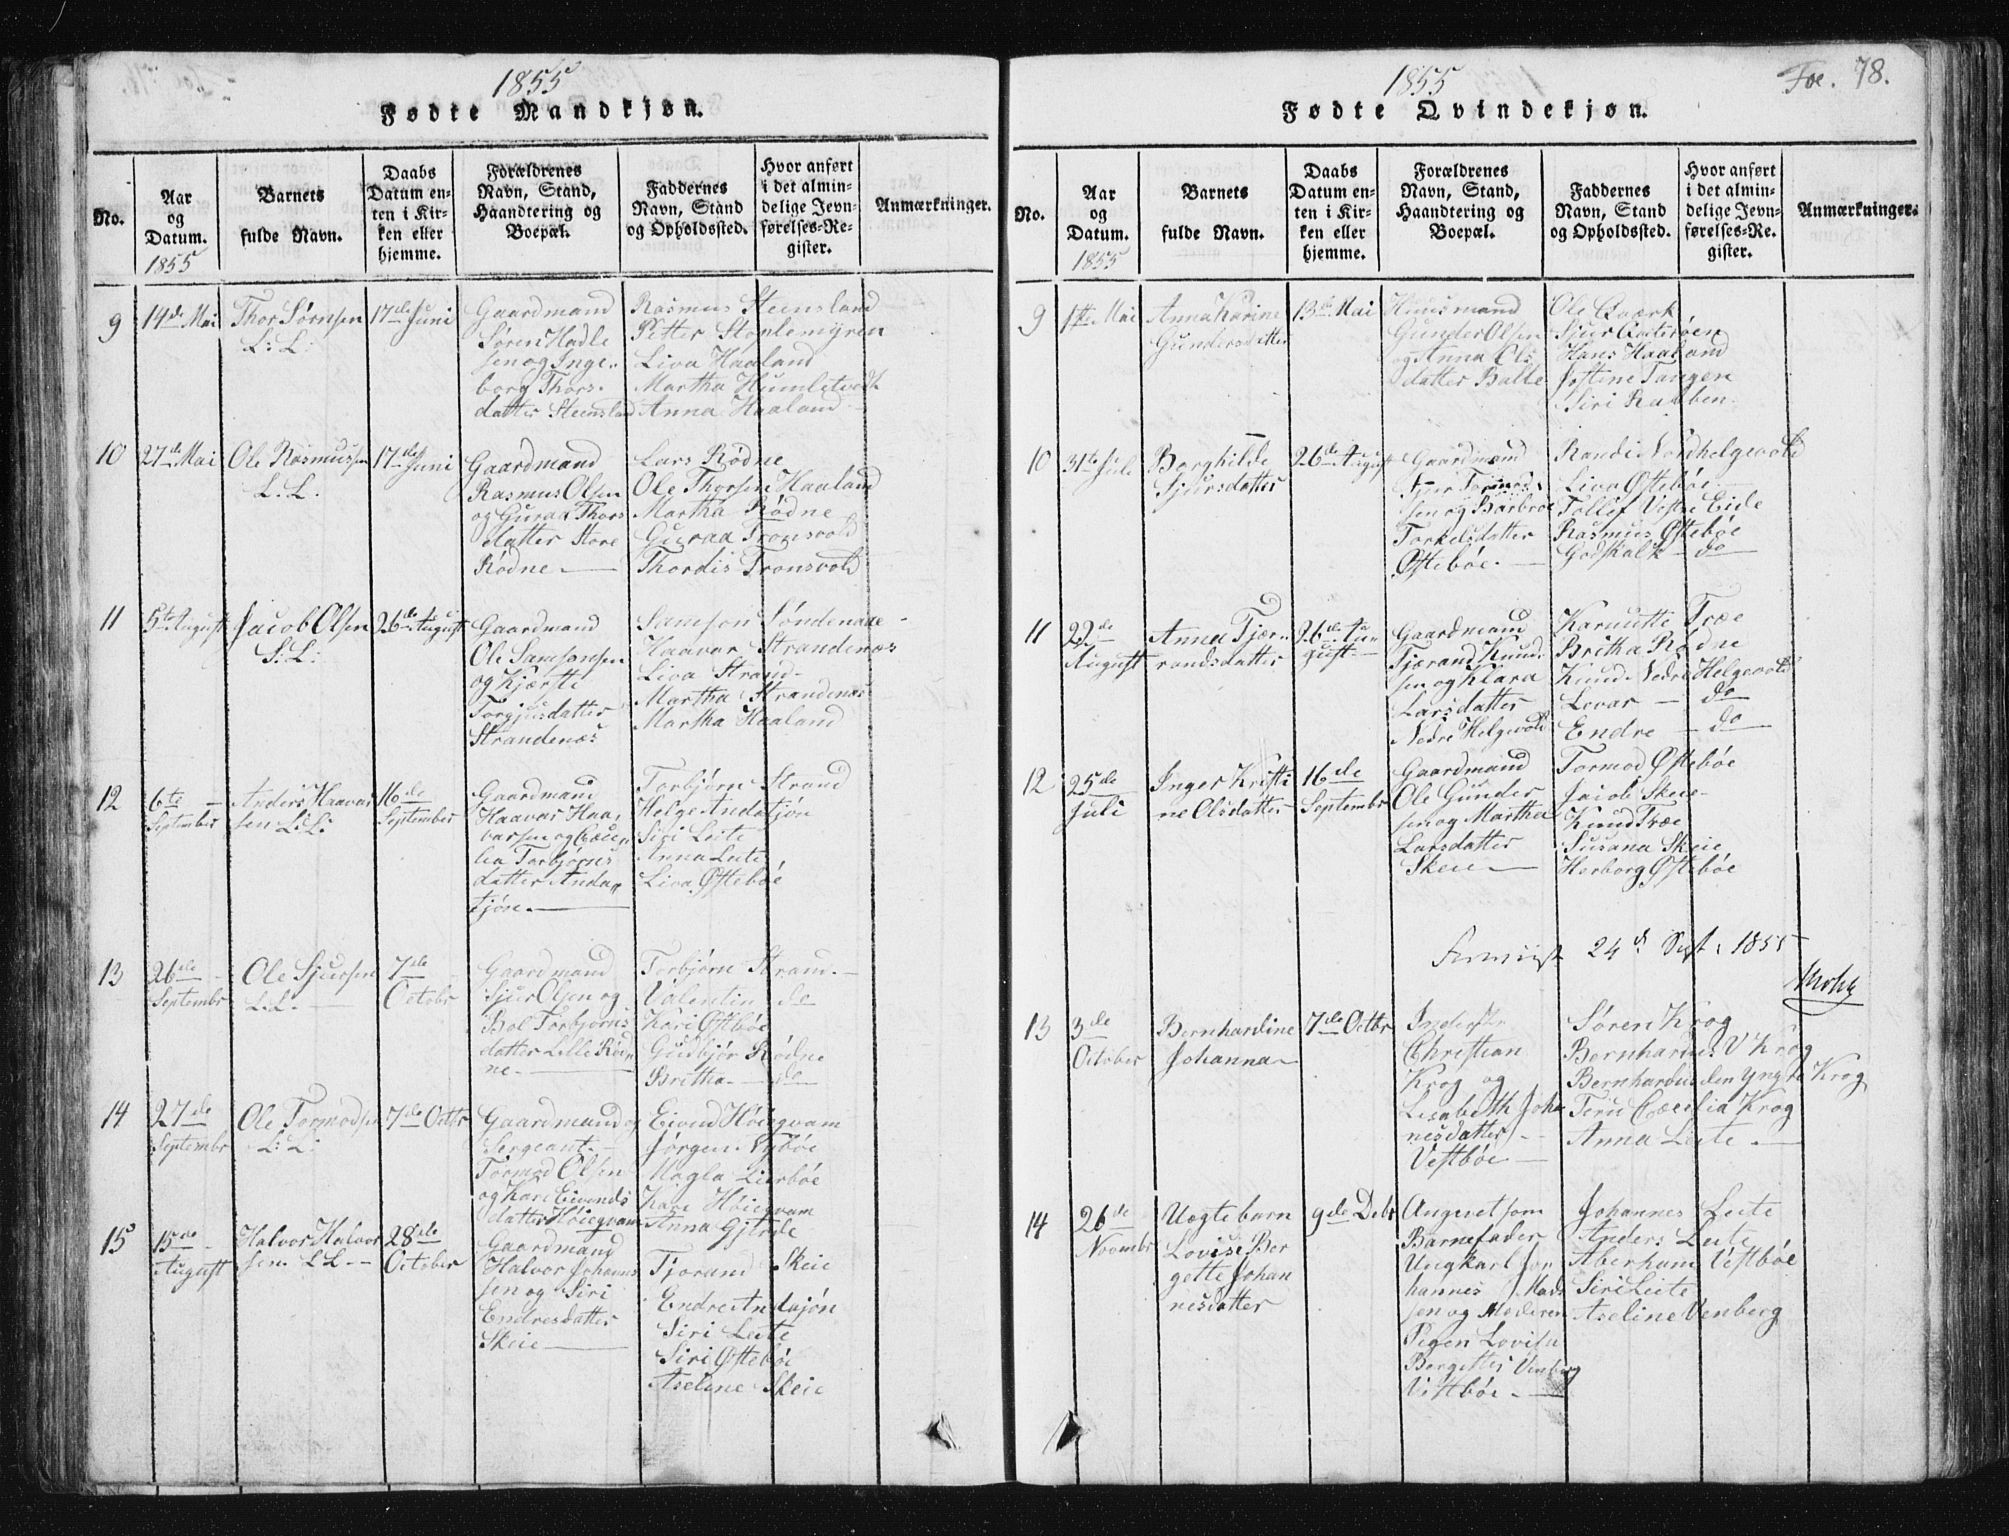 1855
Fødte Mandkjøn.
No.
Aar
og
Datum.
1855
Barnets
fulde Navn.
Daabs
Datum en-
ten i Kir-
ken eller
hjemme.
Forældrenes
Navn, Stand,
Haandtering og
Boepæl.
Faddernes
Navn, Stand
og Opholdssted.
Hvor anført
i det almin-
delige Jevn-
førelses-Re-
gister.
Anmærkninger.
9
14de Mai
Thor Sørnsen
L: L:
17de Juni
Gaardmand
Søren Hadle
sen og Inge-
borg Thors-
datter Steinsland
Rasmus Steinsland
Petter Stoplemyren
Liva Haaland
Martha Humletvedt
Anna Haaland
10
27de Mai
Ole Rasmussen
L. L.
17de Juni
Gaardmand
Rasmus Olsen
og Guraa Thors
datter Store
Rødne
Lars Rødne
Ole Thorsen Haaland
Martha Rødne
Guraa Tronsvold
Thordis Tronsvold
11
5te August
Jacob Olsen
L: L:
26de August
Gaardmand
Ole Samsonsen
og Kjærsti
Torgjusdatter
Strandenæs
Samson Søndenaae
Haavar Strandenæs
Liva Strand
Martha Strandenæs
Martha Haaland
12
6te
September
Anders Haavar
sen L: L:
16de
September
Gaardmand
Haavar Haa-
varsen og Cæci-
lia Torbjørns
datter Anda-
tjøn.
Torbjørn Strand
Helge Andatjøn
Siri Leite
Anna Leite
Liva Øftebøe
13
26de
Septembr
Ole Sjursen
L: L:
7de
Octobr
Gaardmand
Sjur Olsen og
Bol Torbjørns
datter Lille Rød-
ne
Torbjørn Strand
Valentin do
Kari Øftebøe
Gudbjør Rødne
Britha do
14
27de
Septembr
Ole Tormodsen
L: L:
7de Octbr
Gaardmand og
Sergeant
Tormod Olsen
og Kari Eivinds
datter Høiegvam
Eivind Høiegvam
Jørgen Nybøe
Magla Lierbøe
Kari Høiegvam
Anna Gjerde
15
15de
August
Halvor Halvor
sen L L
28de
October
Gaardmand
Halvor Johanns
sen og Siri
Endresdatter
Skeie
Tjorand Skeie
Endre Andasjøn
Siri Leite
Siri Øftebøe
Aseline Skeie
1855
Foe. 78.
Fødte Qvindekjøn.
No.
Aar
og
Datum.
1855
Barnets
fulde Navn.
Daabs
Datum en-
ten i Kir-
ken eller
hjemme.
Forældrenes
Navn, Stand,
Haandtering og
Boepæl.
Faddernes
Navn, Stand
og Opholdssted.
Hvor anført
i det almin-
delige Jevn-
førelses-Re-
gister.
Anmærkninger.
9
1te Mai
Anna Karine
Gundersdatter
13de Mai
Huusmand
Gunder Olsen
og Anna Ols
datter Bakke
Ole Qværk
Sjur
Hans Haaland
Jostine Tangen
Siri
10
31te Juli
Borghilde
Sjursdatter
26de August
Gaardmand
Sjur Tormod-
sen og Barbroe
Torkelsdatter
Øftebøe.
Randi Nordhelgevold
Liva Øftebøe
Tollef Vestre Eide
Rasmus Øftebøe
Godskalk do
11
22de
August
Anna Tjær-
randsdatter
26de Au-
gust
Gaardmand
Tjærand Knud-
sen og Klara
Larsdatter
Nedre Helgevold
Træe
Britha Rødne
Knud Nedre Helgevold
Levar do
Endre do
12
25de
Juli
Inger Kristi
ne Olsdatter
16de
Septembr
Gaardmand
Ole Gunder
sen og Martha
Larsdatter
Skeie
Tormod Øftebøe
Jacob Skeie
Knud Træe
Susana Skeie
Herborg Øftebøe
24d Sept. 1855
13
3de
October
Bernhardine
Johanna
7de Octbr
Inderster
Christian
Krog og
Lisabeth Joha
nesdatter
Vestbøe
Søren Krog
Bernhardus V Krog
Bernhardus den yngre Krog
Cæcilia Krog
Anna Leite
14
26de
Novembr
Uægte barn
Lovise Ber
gette Johan
nesdatter
9de Debr
Angivet som
Barnefader
Ungkarl Jo
hannes Mads
sen og Moderen
Pigen Lovisa
Bergette Venberg
Vestbøe
Johannes Leite
Anders Leite
Aberham Vestbøe
Siri Leite
Aseline Venberg